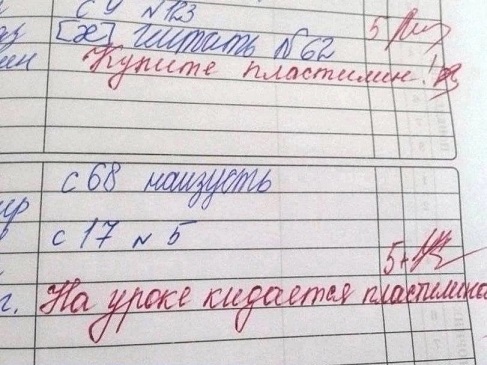 с 4 №123
[х] читать №62 5
Купите пластилин!
с 68 наизусть
с 17 № 5
5+
г. На уроке кидается пластилино